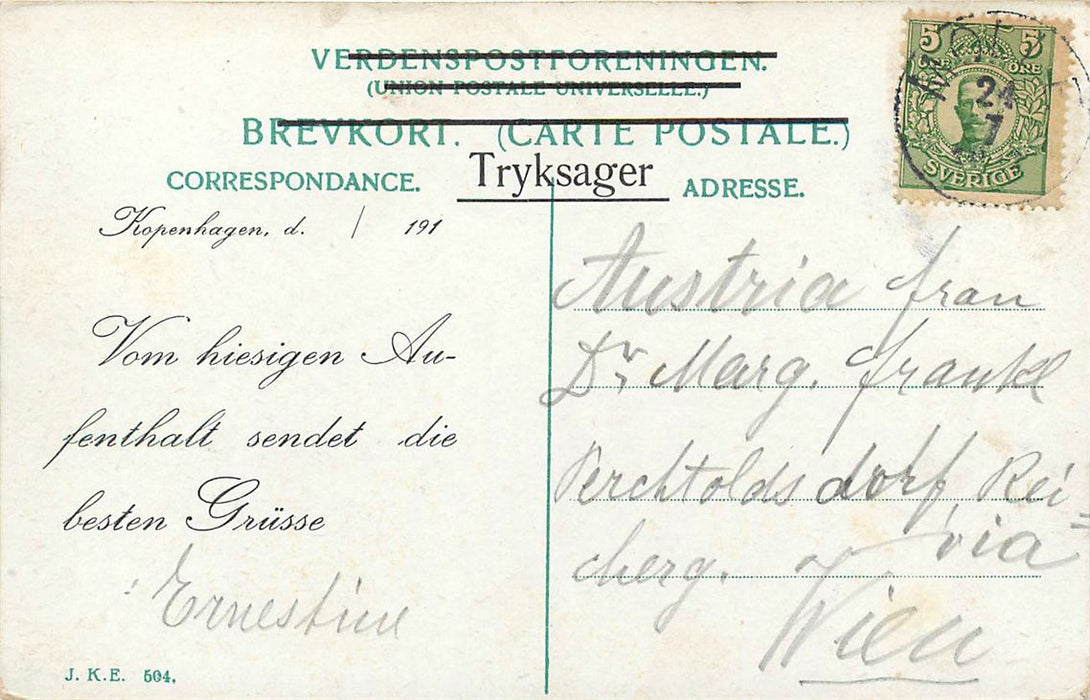 VERDENSPOSTFORENINGEN.
(UNION POSTALE UNIVERSELLE.)
BREVKORT. (CARTE POSTALE.)
CORRESPONDANCE. Tryksager ADRESSE.
5 5
ÖRE ÖRE
SVERIGE
24
7
Kopenhagen, d. / 191
Vom hiesigen Au-
fenthalt sendet die
besten Grüsse
Ernestine
J. K. E. 504.
Austria frau
Dr. Marg. Frankl
Perchtoldsdorf, Rei-
cherg. via
Wien